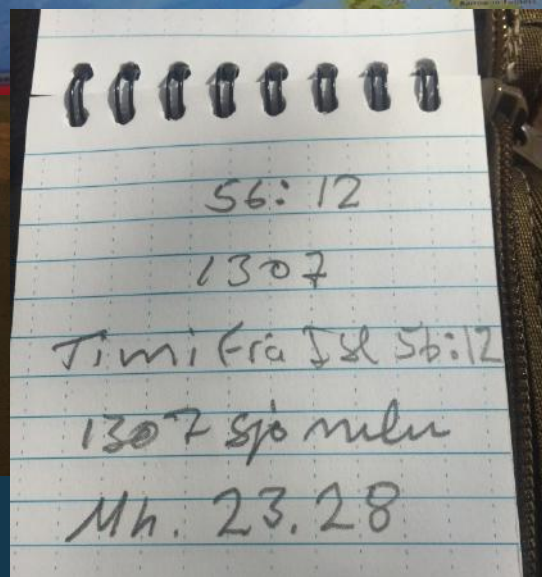 56:12
1307
Tími frá Ísl 56:12
1307 sjómílur
Mh. 23.28